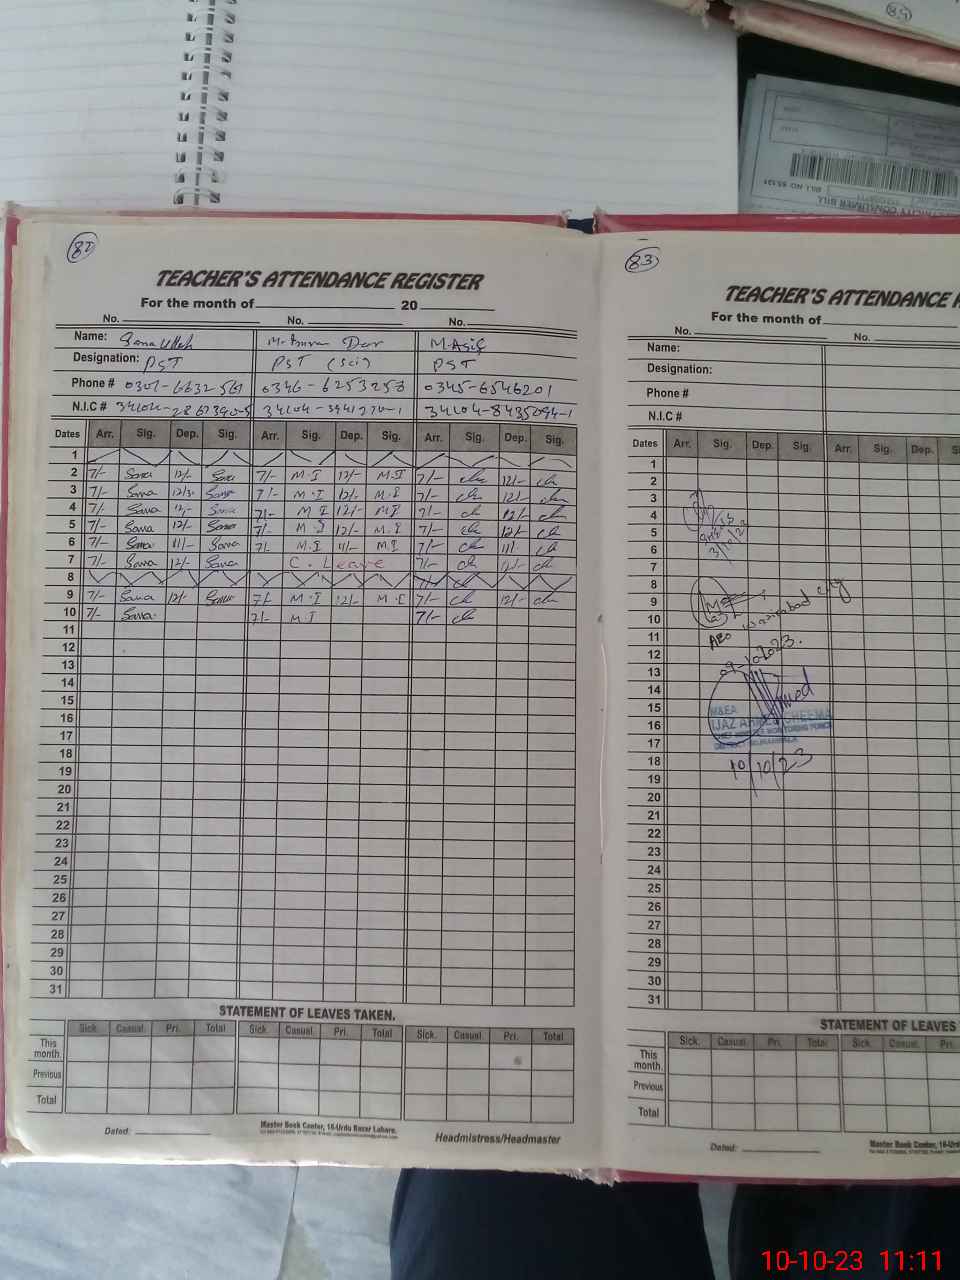 85
BILL NO 55131
ELECTRICITY CONSUMER BILL
82
TEACHER'S ATTENDANCE REGISTER
For the month of 20
No. No. No.
Name: Sana Ullah Dar M. Asif
Designation: PST PST (Sci) PST
Phone # 0346-6253253 0345-6546201
N.I.C # 34104-8435094-1
Dates Arr. Sig. Dep. Sig. Arr. Sig. Dep. Sig. Arr. Sig. Dep. Sig.
1
2 7/- Sana 12/- Sana 7/- M.I 12/- M.I 7/- ch 12/- ch
3 7/- Sana 12/3. Sana 7/- M.I 12/- M.I 7/- ch 12/- ch
4 7/- Sana 12/- Sana 7/- M I 12/- M I 7/- ch 12/- ch
5 7/- Sana 12/- Sana 7/- M I 12/- M.I 7/- ch 12/- ch
6 7/- Sana 11/- Sana 7/- M.I 11/- M I 7/- ch 11/- ch
7 7/- Sana 12/- Sana C. Leave 7/- ch 12/- ch
8 7/- ch
9 7/- Sana 12/- Sana 7/- M.I 12/- M.I 7/- ch 12/- ch
10 7/- Sana 7/- M.I 7/- ch
11
12
13
14
15
16
17
18
19
20
21
22
23
24
25
26
27
28
29
30
31
STATEMENT OF LEAVES TAKEN.
Sick. Casual. Pri. Total Sick. Casual. Pri. Total Sick. Casual. Pri. Total
This month.
Previous
Total
Dated: Master Book Center, 16-Urdu Bazar Lahore. Headmistress/Headmaster
83
TEACHER'S ATTENDANCE
For the month of
No. No.
Name:
Designation:
Phone #
N.I.C #
Dates Arr. Sig. Dep. Sig. Arr. Sig. Dep.
1
2
3
4
5
6 3/10/23
7
8
9
10 Wazirabad city
11 AEO
12
13 09-10-2023.
14
15 M&EA
16 IJAZ AHMED CHEEMA
17
18 10/10/23
19
20
21
22
23
24
25
26
27
28
29
30
31
STATEMENT OF LEAVES
Sick. Casual. Pri. Total Sick. Casual. Pri.
This month.
Previous
Total
Dated: Master Book Center, 16-Urdu
10-10-23 11:11